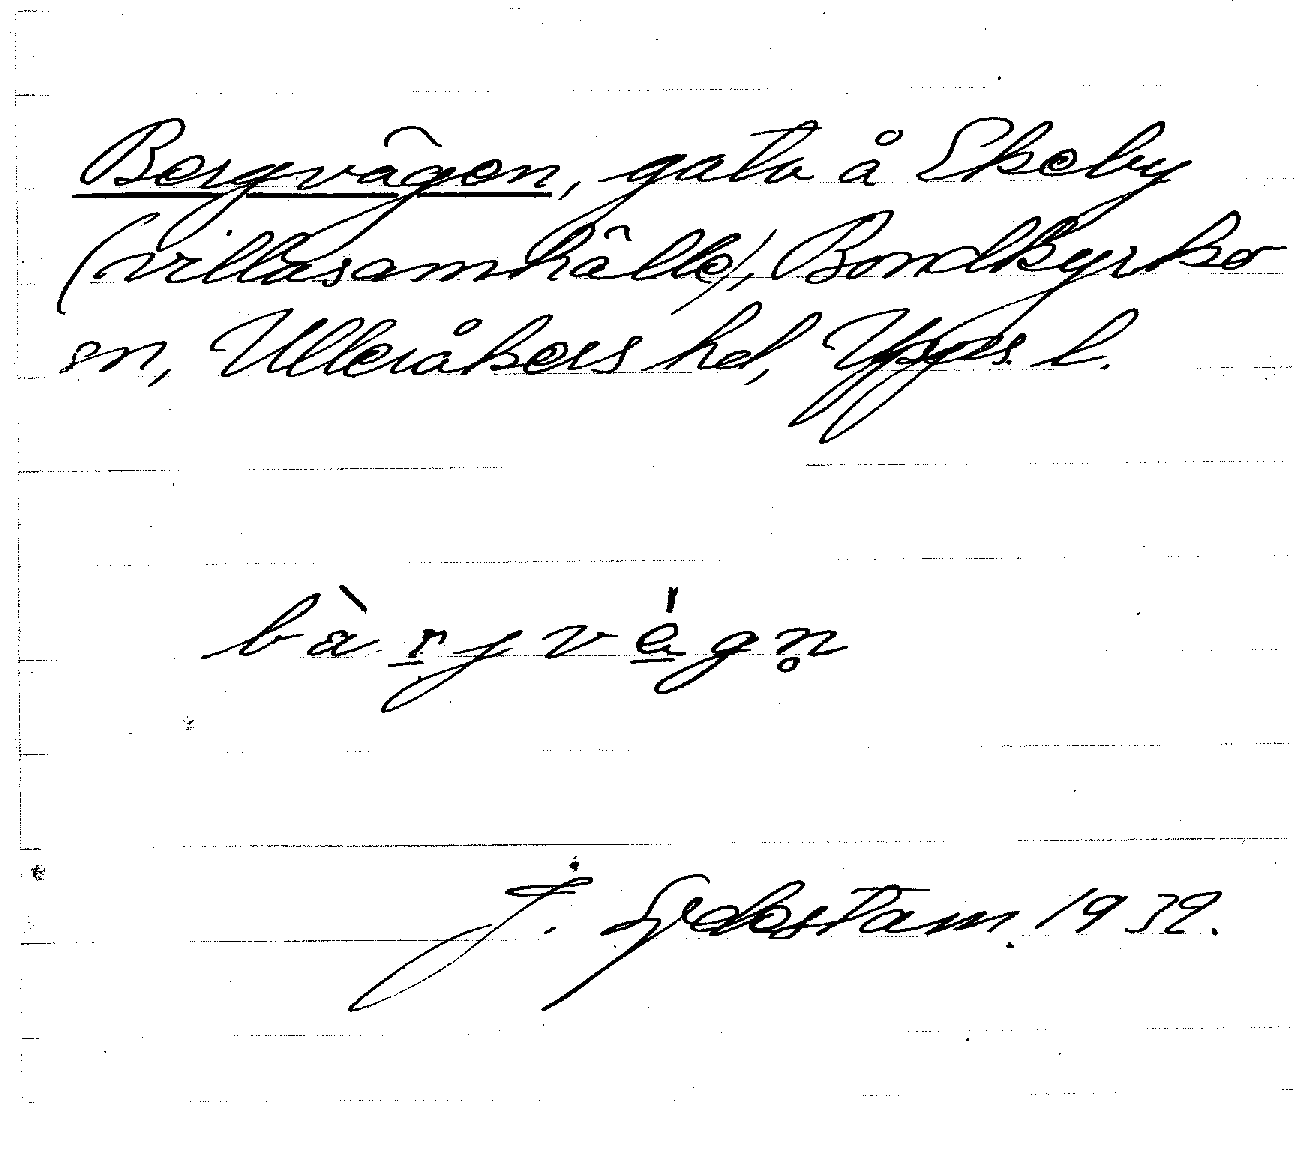 Bergvägen, gata å Ekeby
(villasamhälle), Bondkyrko
sn, Ulleråkers hd, Upps. l.
bà̱rjvá̱gn̥
J. Sydostam. 1932.